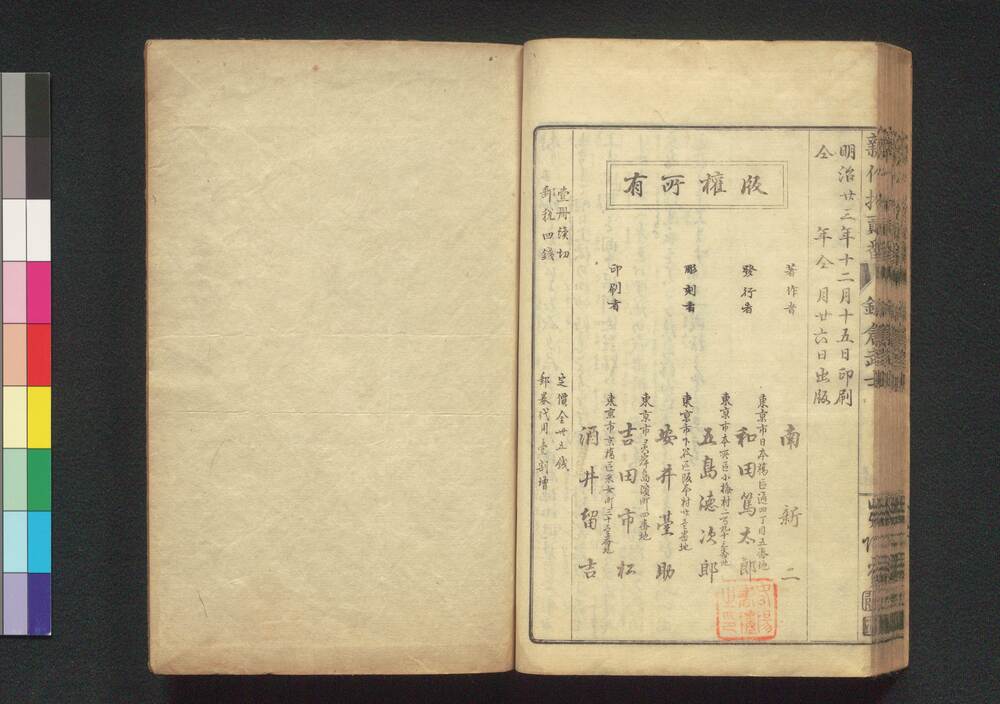 明治廿三年十二月十五日印刷
仝　年仝　月廿六日出版
版権所有
著作者　南新二
東京市日本橋區通四丁目五番地
發行者　和田篤太郎
東京市本所區小梅村二百
彫刻者　五島德次郎
東京市下谷區阪本村廿壱番地
安井臺助
東京市灵岸島濱町四番地
印刷者　吉田市松
東京市京橋區采女町二十五番地
酒井留吉
壹冊讀切　定價金廿五錢
郵税四錢　郵券代用壹割増